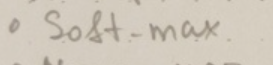 • Soft-max.